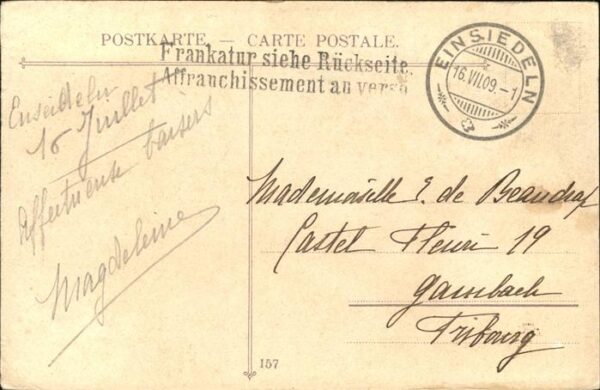 POSTKARTE. — CARTE POSTALE.
Frankatur siehe Rückseite.
Affranchissement au verso
EINSIEDELN
16.VII.09.-1
Einsiedeln
16 Juillet
Affectueux baisers
Magdeleine
Mademoiselle E. de
Castel Fleuri 19
Gambach
Fribourg
157